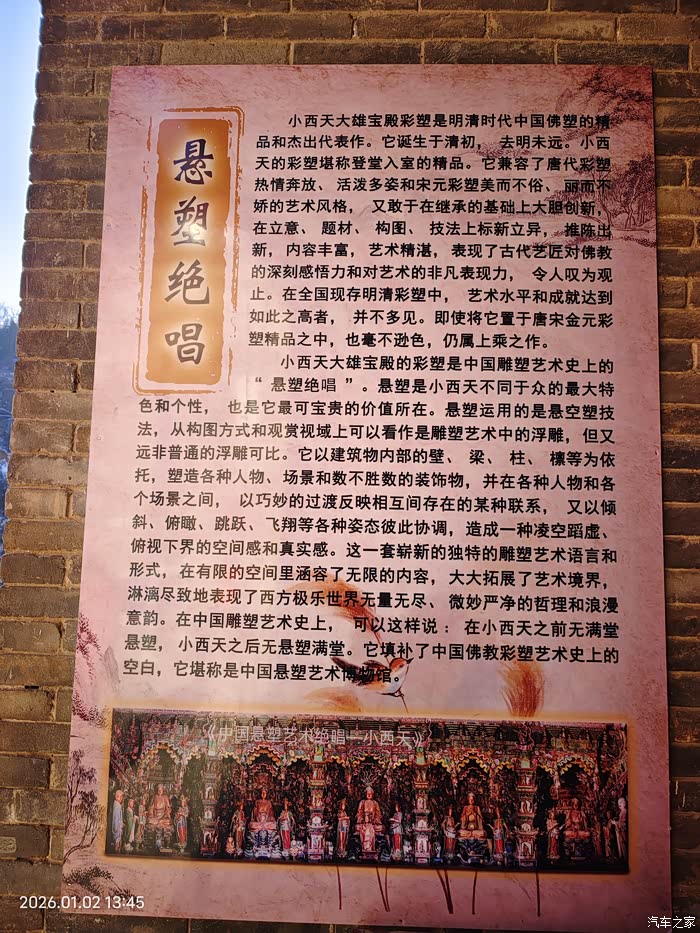 悬塑绝唱
小西天大雄宝殿彩塑是明清时代中国佛塑的精
品和杰出代表作。它诞生于清初， 去明未远。小西
天的彩塑堪称登堂入室的精品。它兼容了唐代彩塑
热情奔放、活泼多姿和宋元彩塑美而不俗、丽而不
娇的艺术风格， 又敢于在继承的基础上大胆创新，
在立意、 题材、 构图、 技法上标新立异， 推陈出
新，内容丰富，艺术精湛，表现了古代艺匠对佛教
的深刻感悟力和对艺术的非凡表现力， 令人叹为观
止。在全国现存明清彩塑中， 艺术水平和成就达到
如此之高者， 并不多见。即使将它置于唐宋金元彩
塑精品之中，也毫不逊色，仍属上乘之作。
小西天大雄宝殿的彩塑是中国雕塑艺术史上的
“ 悬塑绝唱 ”。悬塑是小西天不同于众的最大特
色和个性， 也是它最可宝贵的价值所在。悬塑运用的是悬空塑技
法，从构图方式和观赏视域上可以看作是雕塑艺术中的浮雕，但又
远非普通的浮雕可比。它以建筑物内部的壁、 梁、 柱、 檩等为依
托，塑造各种人物、场景和数不胜数的装饰物，并在各种人物和各
个场景之间， 以巧妙的过渡反映相互间存在的某种联系， 又以倾
斜、俯瞰、跳跃、飞翔等各种姿态彼此协调，造成一种凌空蹈虚、
俯视下界的空间感和真实感。这一套崭新的独特的雕塑艺术语言和
形式，在有限的空间里涵容了无限的内容，大大拓展了艺术境界，
淋漓尽致地表现了西方极乐世界无量无尽、 微妙严净的哲理和浪漫
意韵。在中国雕塑艺术史上， 可以这样说： 在小西天之前无满堂
悬塑，小西天之后无悬塑满堂。它填补了中国佛教彩塑艺术史上的
空白，它堪称是中国悬塑艺术博物馆。
《中国悬塑艺术绝唱—小西天》
2026.01.02 13:45
汽车之家